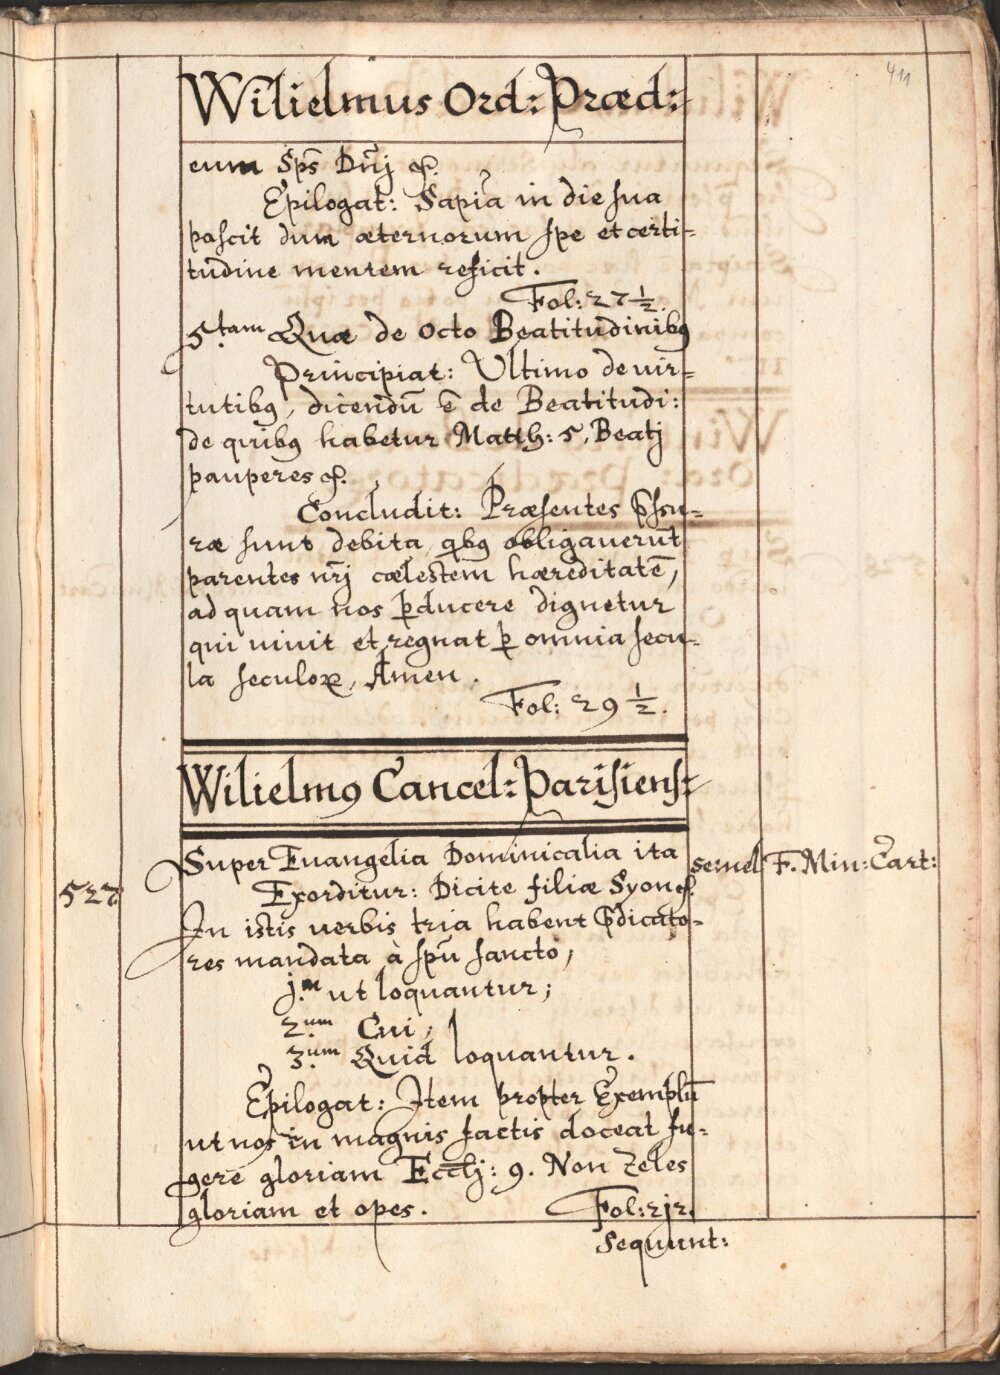 411
Wilielmus Ord: Præd:
eum Sp̄s Dn̄j &.
Epilogat: Sapia in die sua
pascit dum æternorum spe et certi=
tudine mentem reficit.
Fol: 27 ½.
5.tam Quæ de Octo Beatitudinibꝰ
Principiat: Ultimo de vir=
tutibꝰ, dicendū ē de Beatitudi:
de quibꝰ habetur Matth: 5, Beatj
pauperes &.
Concludit: Præsentes p̄ssu=
ræ sunt debita, qibꝰ obligaverūt
parentes nr̄j cœlestem hæreditatē,
ad quam nos ꝑducere dignetur
qui vivit et regnat ꝑ omnia secu=
la seculoꝝ, Amen.
Fol: 29 ½.
Wilielmꝰ Cancel: Parisiens:
527
Super Evangelia Dominicalia ita
semel F. Min: Cart:
Exorditur: Dicite filiæ Syon &.
In istis verbis tria habent P̄dicato=
res mandata à spū sancto,
j.m ut loquantur;
2.um Cui;
3.um Quid loquantur.
Epilogat: Item propter Exemplū
ut nos in magnis factis doceat fu=
gere gloriam Ecclj: 9. Non Zeles
gloriam et opes.
Fol: 2j2.
Sequunt: